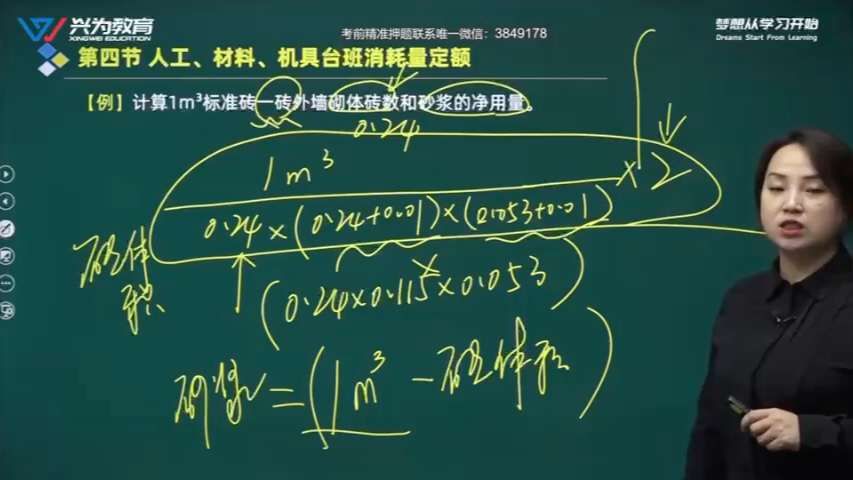 兴为教育
XINGWEI EDUCATION
考前精准押题联系唯一微信：3849178
梦想从学习开始
Dreams Start From Learning
第四节 人工、材料、机具台班消耗量定额
【例】计算1m³标准砖一砖外墙砌体砖数和砂浆的净用量。
0.24
1m³
×2
0.24×(0.24+0.01)×(0.053+0.01)
砖体积
×
(0.24×0.115×0.053)
砂浆=(1m³-砖体积)